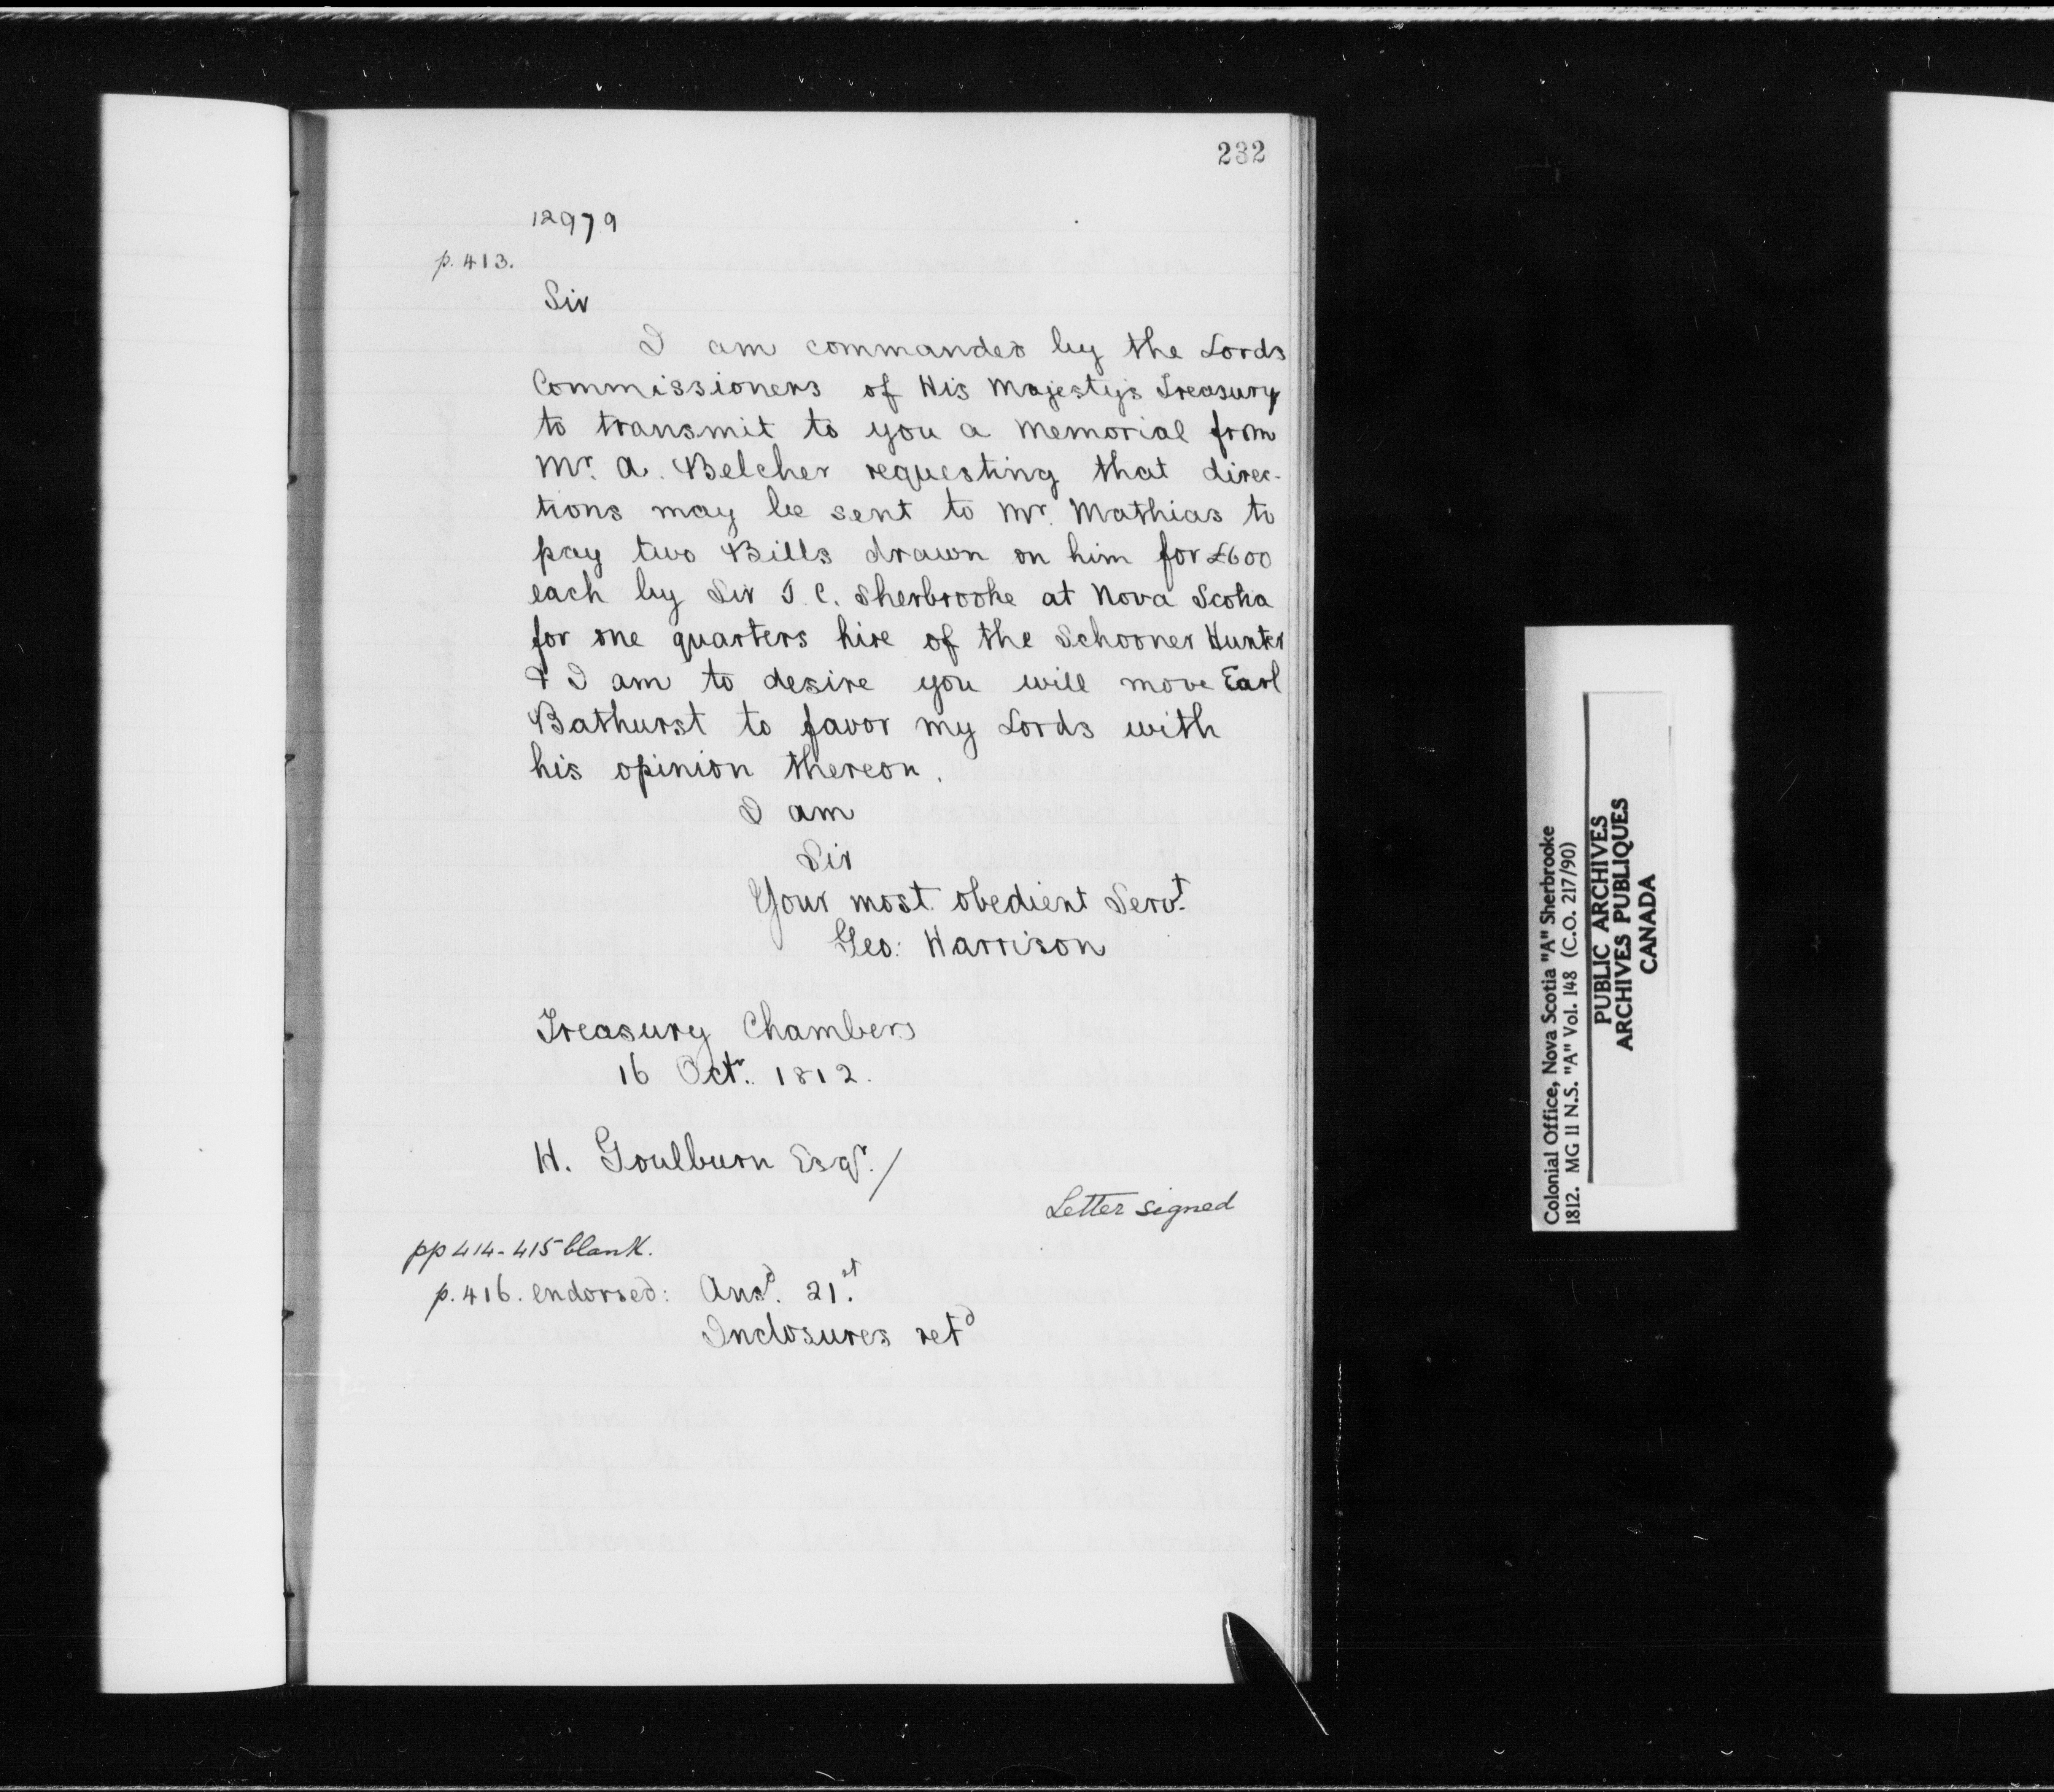 232
12979
p. 413.
Sir
I am commanded by the Lords
Commissioners of His Majesty's Treasury
to transmit to you a Memorial from
Mr. A. Belcher requesting that direc-
tions may be sent to Mr. Mathias to
pay two Bills drawn on him for £600
each by Sir J. C. Sherbrooke at Nova Scotia
for one quarters hire of the Schooner Hunter
& I am to desire you will move Earl
Bathurst to favor my Lords with
his opinion thereon.
I am
Sir
Your most obedient Servt.
Geo: Harrison
Treasury Chambers
16 Octr. 1812.
H. Goulburn Esqr./
Letter signed
pp 414-415 blank.
p. 416. endorsed: Ansd. 21st.
Inclosures retd
Colonial Office, Nova Scotia "A" Sherbrooke
1812. MG 11 N.S. "A" Vol. 148 (C.O. 217/90)
PUBLIC ARCHIVES
ARCHIVES PUBLIQUES
CANADA